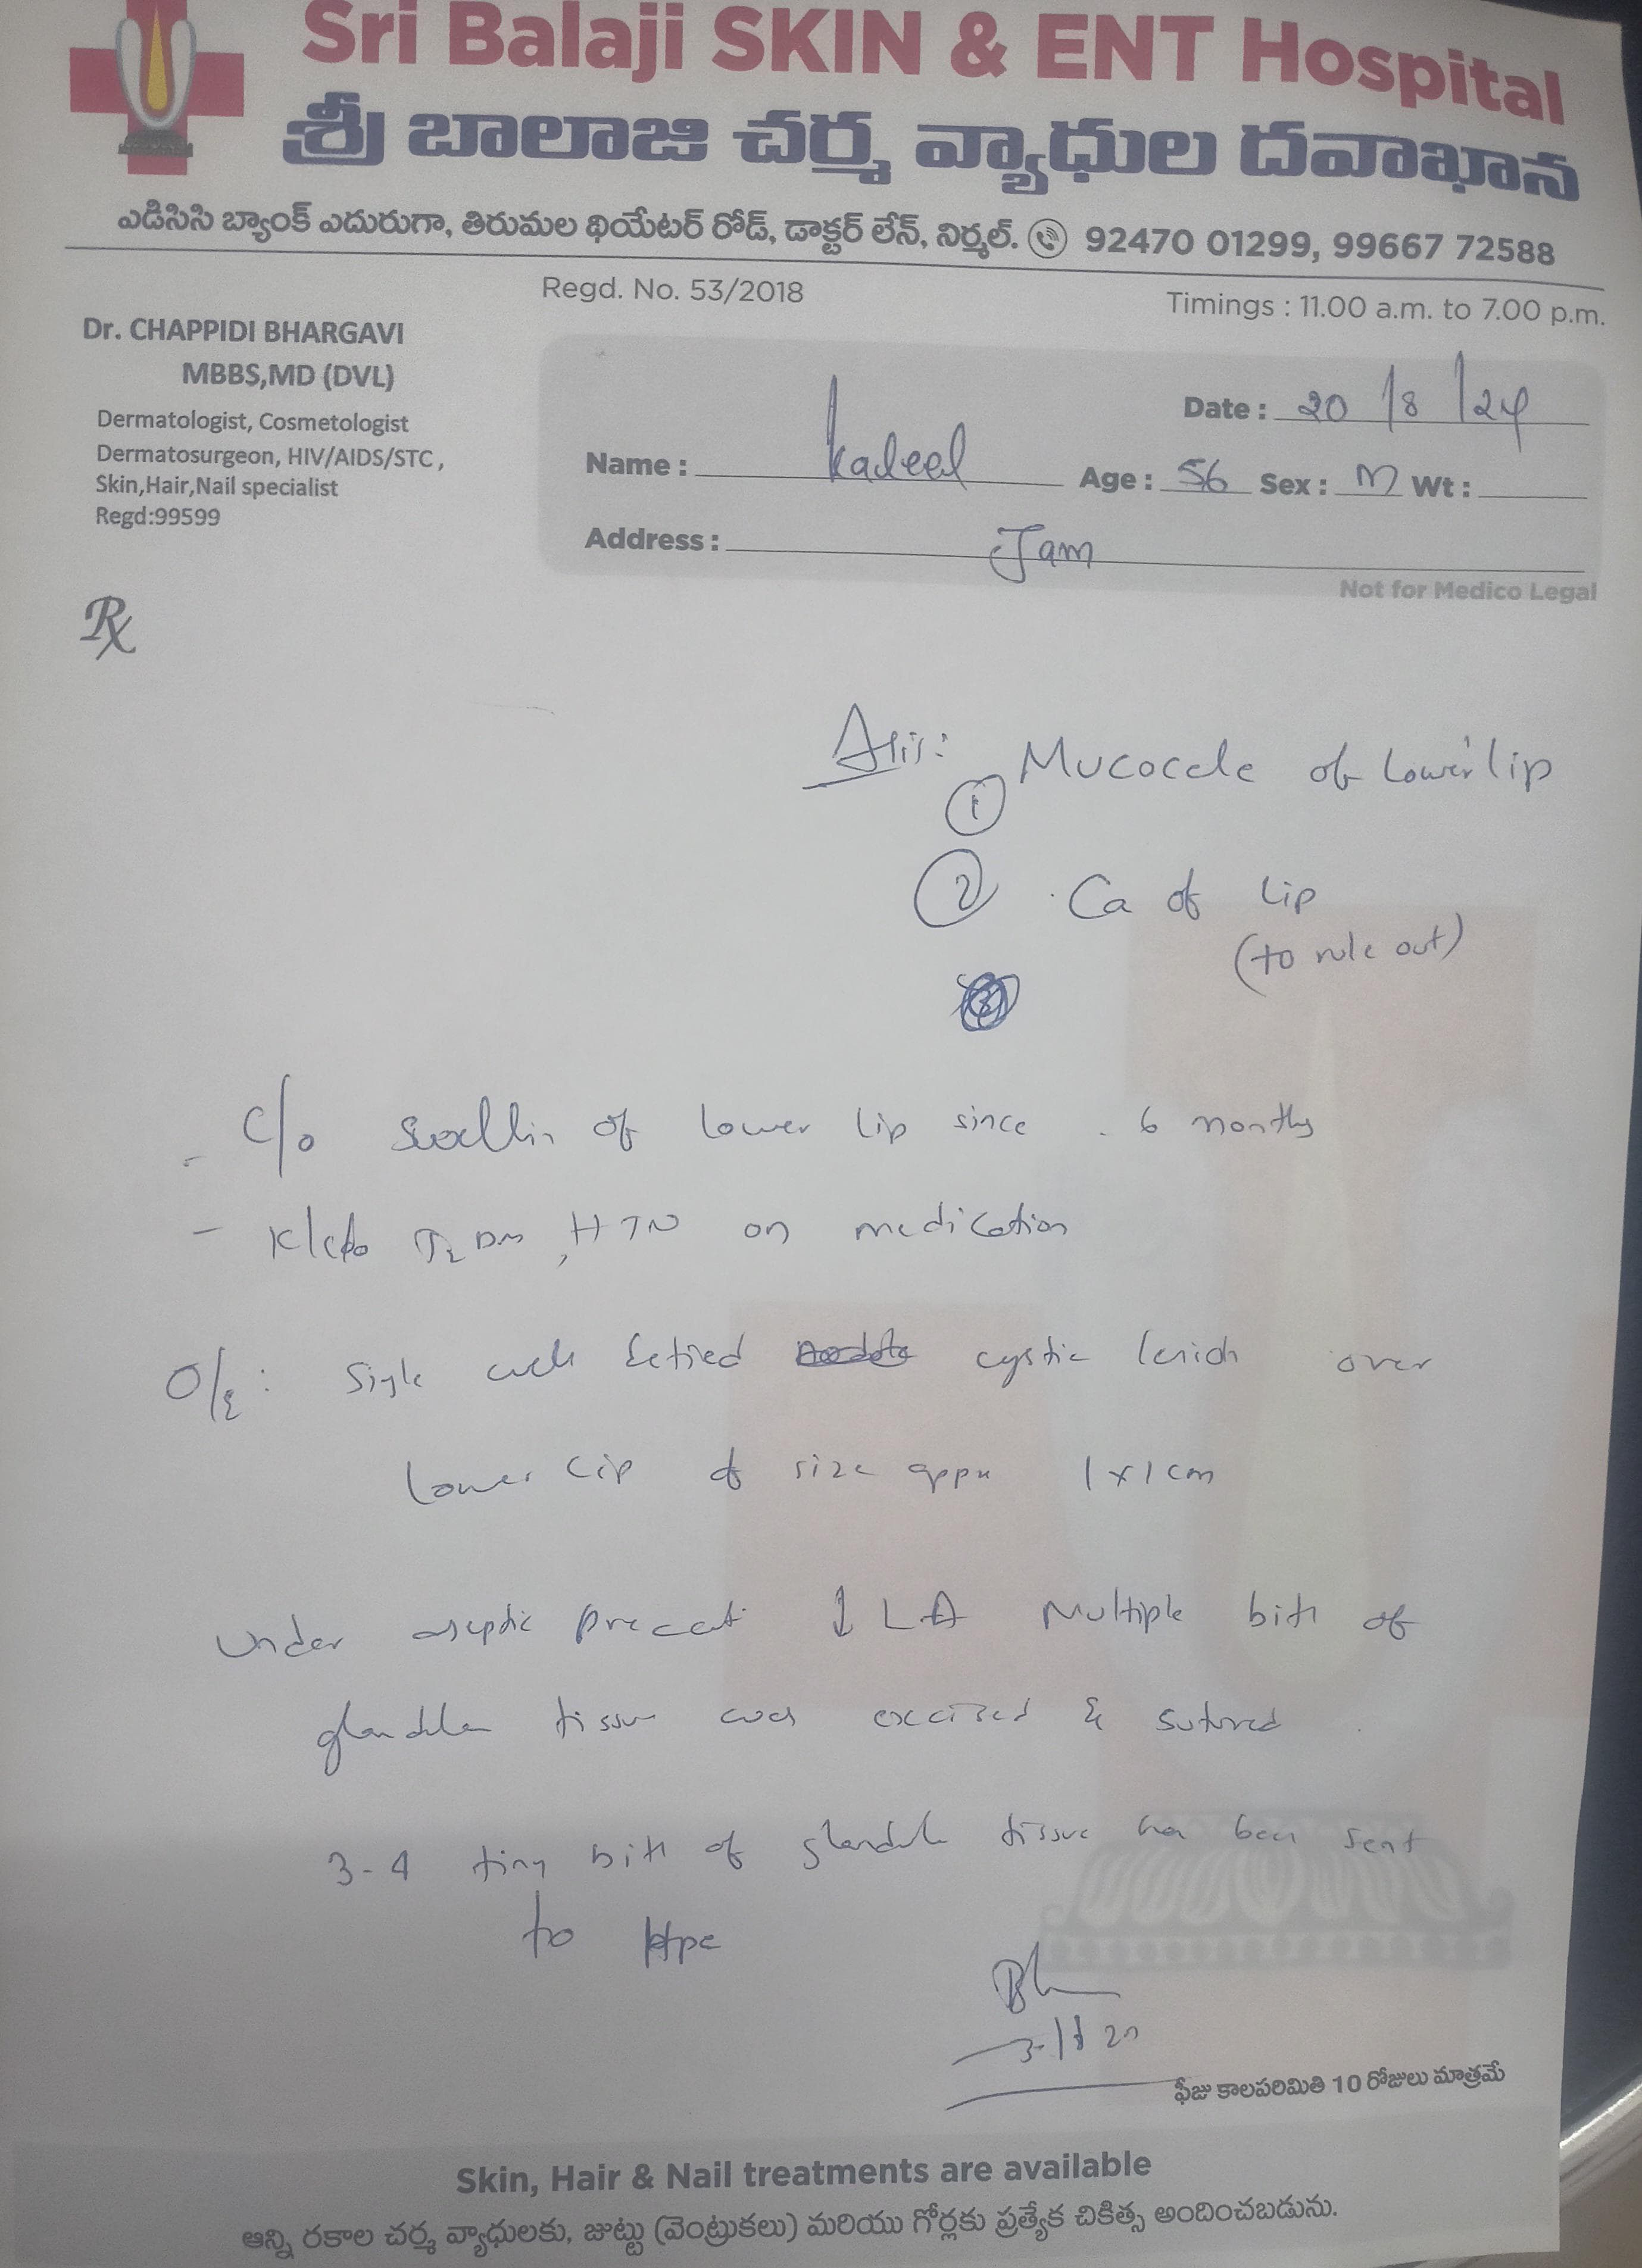 Sri Balaji SKIN & ENT Hospital
శ్రీ బాలాజి చర్మ వ్యాధుల దవాఖాన
ఎడిసిసి బ్యాంక్ ఎదురుగా, తిరుమల థియేటర్ రోడ్, డాక్టర్ లేన్, నిర్మల్. 92470 01299, 99667 72588
Regd. No. 53/2018
Timings : 11.00 a.m. to 7.00 p.m.
Dr. CHAPPIDI BHARGAVI
MBBS,MD (DVL)
Dermatologist, Cosmetologist
Dermatosurgeon, HIV/AIDS/STC ,
Skin,Hair,Nail specialist
Regd:99599
Date : 20/8/24
Name : Kadeel Age : 56 Sex : M Wt :
Address : Jam
Not for Medico Legal
Rx
① Mucocele of Lower lip
② Ca of Lip
(to rule out)
- C/o of Lower Lip since 6 months
- T2 DM, HTN on medication
O/E : cystic over
Lower Lip of size 1x1cm
Under aseptic ↓ LA Multiple of
tissue excised & sutured
3-4 tiny of tissue been sent
to Hpe
ఫీజు కాలపరిమితి 10 రోజులు మాత్రమే
Skin, Hair & Nail treatments are available
అన్ని రకాల చర్మ వ్యాధులకు, జుట్టు (వెంట్రుకలు) మరియు గోర్లకు ప్రత్యేక చికిత్స అందించబడును.